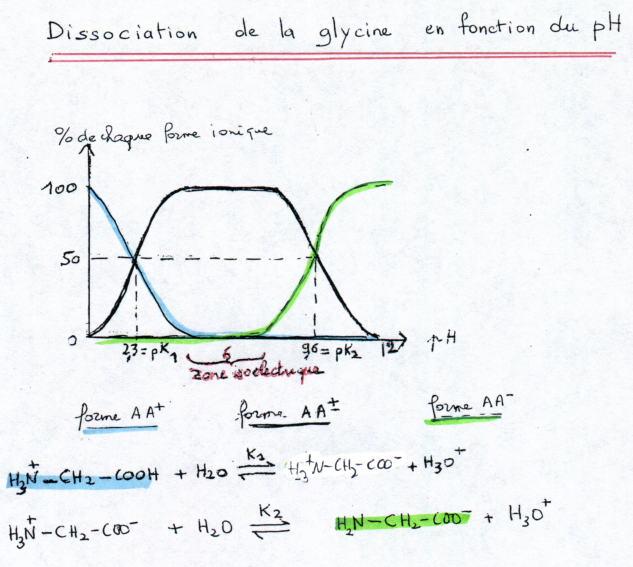 Dissociation de la glycine en fonction du pH
% de chaque forme ionique
100
50
0
2,3 = pK₁ 6 9,6 = pK₂ 12 pH
zone isoelectrique
forme AA⁺ forme AA± forme AA⁻
H₃N⁺-CH₂-COOH + H₂O ⇌ K₁ H₃⁺N-CH₂-COO⁻ + H₃O⁺
H₃N⁺-CH₂-COO⁻ + H₂O ⇌ K₂ H₂N-CH₂-COO⁻ + H₃O⁺